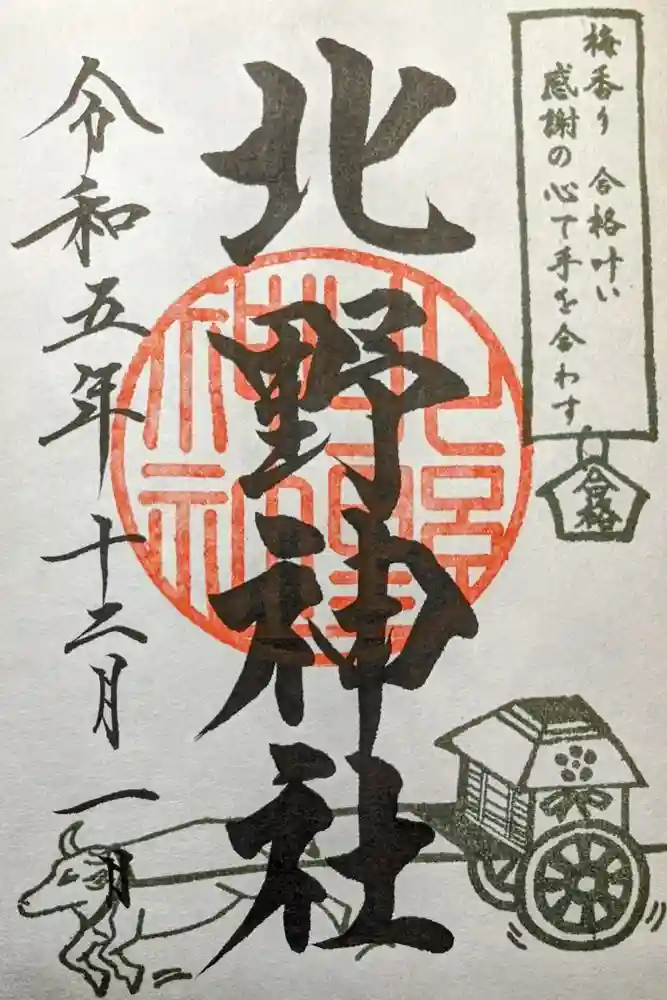 梅香り 合格叶い
感謝の心で手を合わす
合格
北野神社
北野神社
令和五年十二月一日